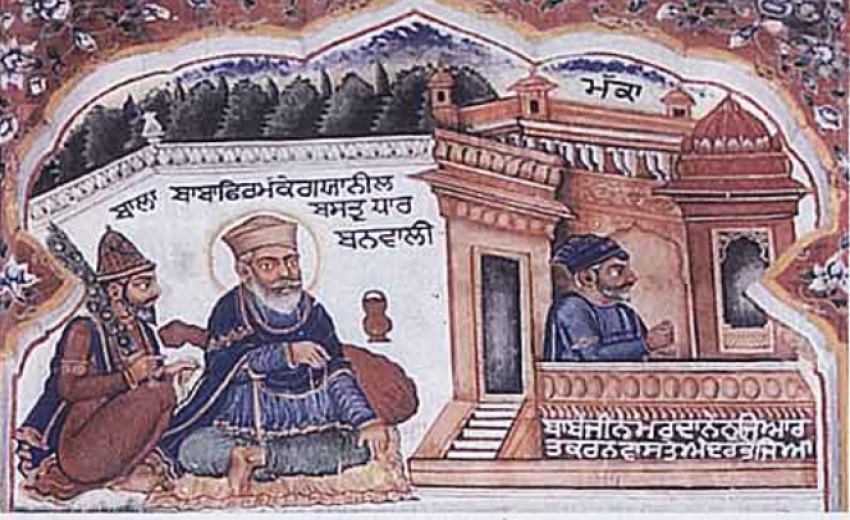 ਮੱਕਾ
ਬਾਲਾ
ਬਾਬਾ ਫਿਰ ਮੱਕੇ ਗਯਾ ਨੀਲ
ਬਸਤ੍ਰ ਧਾਰ
ਬਨਵਾਲੀ
ਬਾਬੇ ਜੀ ਨੇ ਮਰਦਾਨੇ ਨੂੰ
ਕਰਨ ਵਾਸਤੇ ਅੰਦਰ ਭੇਜਿਆ